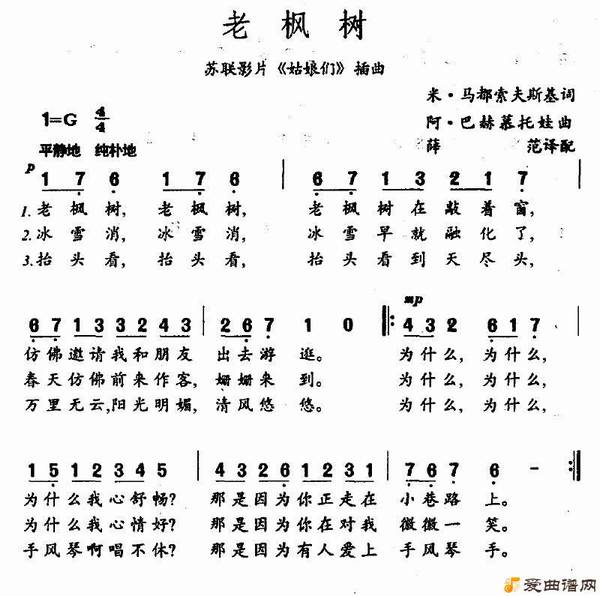 老枫树
苏联影片《姑娘们》插曲
米·马都索夫斯基词
1=G 4/4
阿·巴赫慕托娃曲
平静地 纯朴地
薛 范译配
p
1 7 6 1 7 6 | 6 7 1 3 2 1 7
1.老枫树, 老枫树, 老枫树在敲着窗,
2.冰雪消, 冰雪消, 冰雪早就融化了,
3.抬头看, 抬头看, 抬头看到天尽头,
mp
6 7 1 3 3 2 4 3 | 2 6 7 1 0 :4 3 2 6 1 7
仿佛邀请我和朋友 出去游逛。 为什么, 为什么,
春天仿佛前来作客, 姗姗来到。 为什么, 为什么,
万里无云,阳光明媚, 清风悠悠。 为什么, 为什么,
1 5 1 2 3 4 5 | 4 3 2 6 1 2 3 1 | 6 7 6 7 6 - :
为什么我心舒畅? 那是因为你正走在 小巷路上。
为什么我心情好? 那是因为你在对我 微微一笑。
手风琴啊唱不休? 那是因为有人爱上 手风琴手。
爱曲谱网